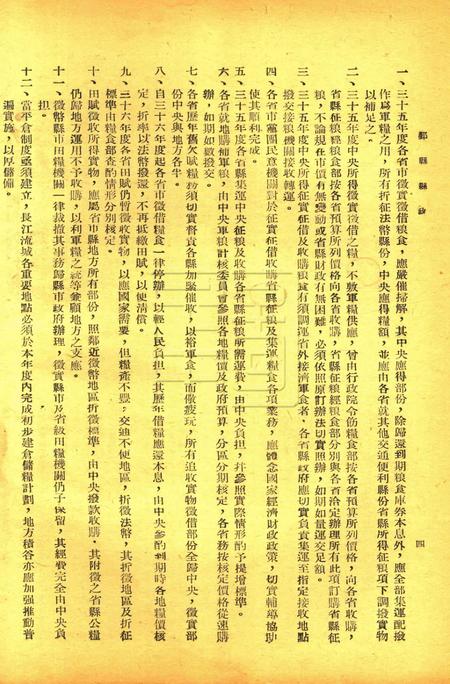 鄞縣縣政
四
一、三十五年度各省市徵實徵借粮食，應嚴催掃解，其中央應得部份，除歸還到期粮食庫券本息外，應全部集運配撥
作爲軍粮之用，所有折征法幣縣份，中央應得粮額，並應由各省就其他交通便利縣份省縣所得征粮項下調撥實物
以補足之。
二、三十五年度中央所得徵實徵借之粮，不敷軍粮供應，曾由行政院令飭糧食部按各省預算所列價格，向各省收購，
省縣征粮經粮食部按各省預算所列價格向各省收購，省縣征粮經粮食部分別與各省洽定辦理所有此項訂購省縣征
粮，不論現在市價有無變動或省縣財政有無困難，必須依照原訂辦法切實照辦，如期如量運交足額。
三、三十五年度中央所得征實征借及收購粮食有須調運省外接濟軍食者，各省縣政府應切實負責集運至指定接收地點
撥交接粮機關接收轉運。
四、各省市黨團民意機關對於征實征借收購省縣征粮及集運糧食各項業務，應體念國家經濟財政政策，切實輔導協助
使其順利完成。
五、三十五年度各省縣集運中央征粮及收購各省縣征粮所需運費，由中央負担，幷參照實際情形酌予提增標準。
六、各省就地購補軍粮，由中央軍粮計核委員會參照各地糧價及政府預算，分區分期核定，各省務按核定價格從速購
辦，如期如數撥交。
七、各省歷年舊欠賦糧務須切實督責各縣加緊催收，以裕軍食，而儆疲玩，所有追收實物徵借部份全歸中央，徵實部
份中央與地方各半。
八、自三十六年度起各省市徵借糧食一律停辦，以輕人民負担，其歷年借糧應還本息，由中央參酌到期時各地糧價核
定，折率以法幣撥還，不再抵繳田賦，以使清償。
九、三十六年度各省田賦仍暫徵收實物，以應國家需要，但糧產不豐，交通不便地區，折徵法幣，其折徵地區及折征
標準由糧食部查酌情形分別核定。
十、田賦徵收所得實物，應屬省市縣地方所有部份，照鄰近徵幣地區折徵標準，由中央撥款收購。其附徵之省縣公糧
仍歸地方運用不予收購，以利軍糧之統籌兼顧地方之支應。
十一、徵幣縣市田糧機關一律裁撤其事務歸縣市政府辦理，徵實縣市及省級田糧機關仍予保留，其經費完全由中央負
担。
十二、常平倉制度亟須建立，長江流域各重要地點必須於本年度內完成初步建倉儲糧計劃，地方積谷亦應加强推動普
遍實施，以厚儲備。